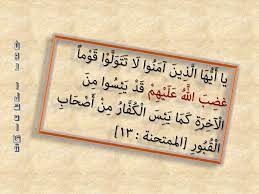 يا أَيُّهَا الَّذِينَ آمَنُوا لَا تَتَوَلَّوْا قَوْماً
غَضِبَ اللَّهُ عَلَيْهِمْ قَدْ يَئِسُوا مِنَ
الْآخِرَةِ كَمَا يَئِسَ الْكُفَّارُ مِنْ أَصْحَابِ
الْقُبُورِ [الممتحنة :١٣]